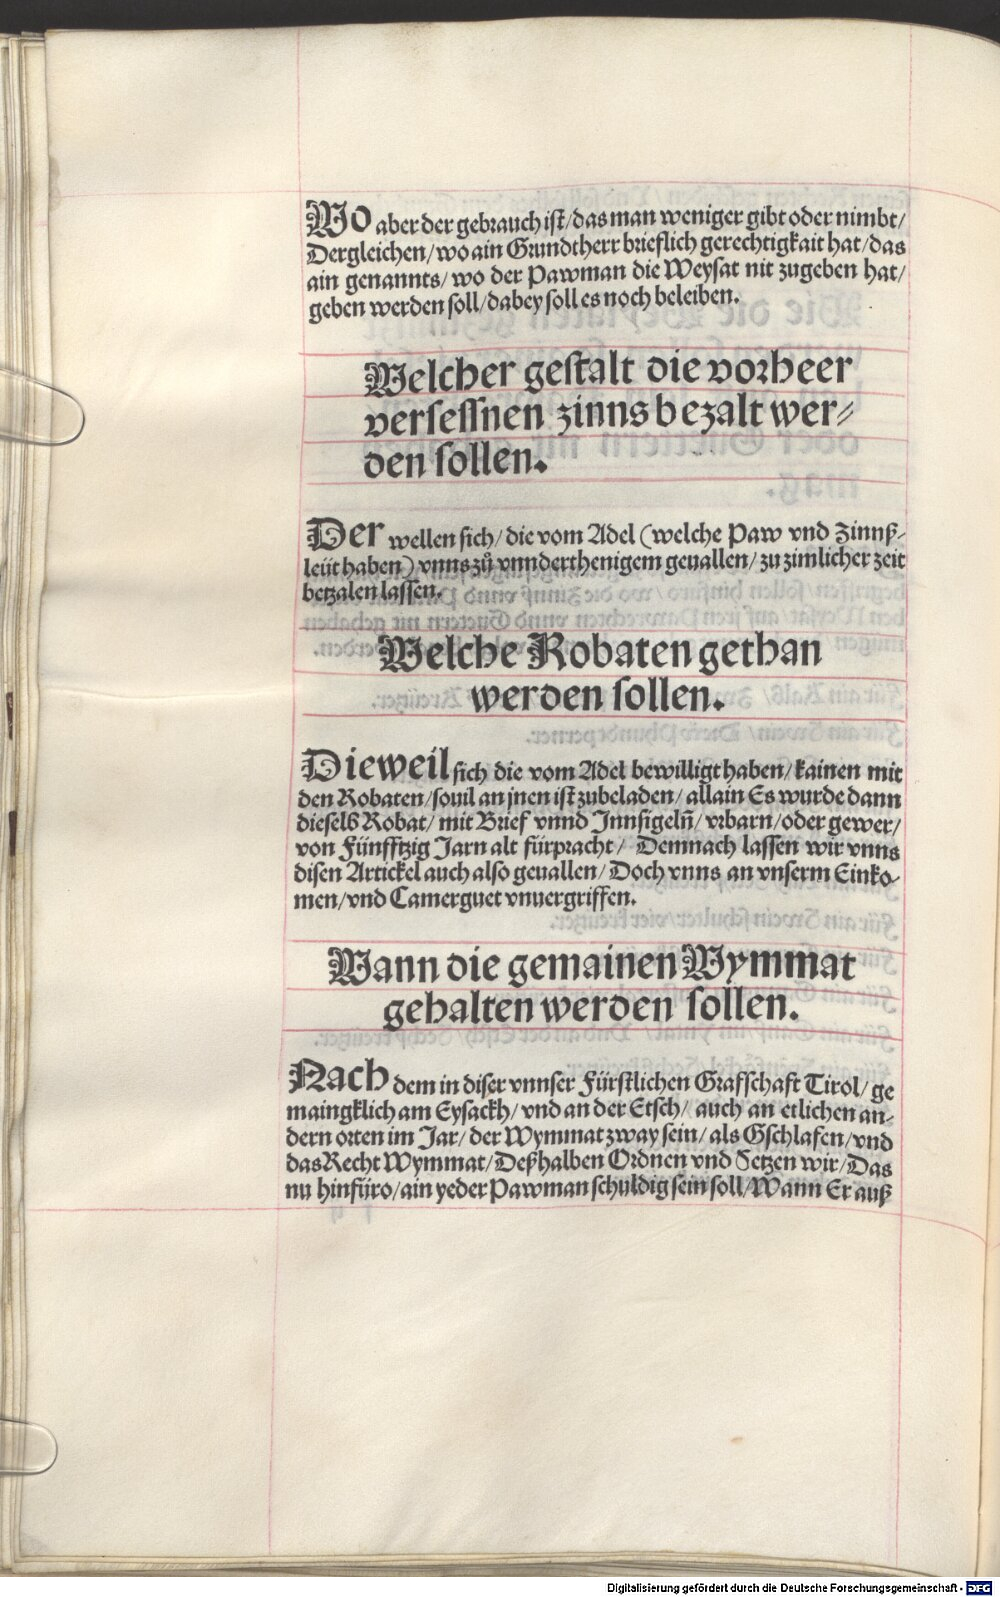 Wo aber der gebrauch ist/das man weniger gibt oder nimbt/
Dergleichen/wo ain Grundtherr brieflich gerechtigkait hat/das
ain genannts/wo der Pawman die Weysat nit zugeben hat/
geben werden soll/dabey soll es noch beleiben.
Welcher gestalt die vorheer
versessnen zinns bezalt wer⸗
den sollen.
Der wellen sich/die vom Adel (welche Paw vnd Zinnß⸗
leüt haben) vnns zů vnnderthenigem geuallen/zu zimlicher zeit
betzalen lassen.
Welche Robaten gethan
werden sollen.
Dieweil sich die vom Adel bewilligt haben/kainen mit
den Robaten/souil an jnen ist zubeladen/allain Es wurde dann
dieselb Robat/mit Brief vnnd Innsigeln̄/vrbarn/oder gewer/
von Fünfftzig Jarn alt fürpracht/Demnach lassen wir vnns
disen Artickel auch also geuallen/Doch vnns an vnserm Einko⸗
men/vnd Camerguet vnuergriffen.
Wann die gemainen Wymmat
gehalten werden sollen.
Nach dem in diser vnnser Fürstlichen Grafschaft Tirol/ge
maingklich am Eysackh/vnd an der Etsch/auch an etlichen an⸗
dern orten im Jar/der Wymmat zway sein/als Gschlafen/vnd
das Recht Wymmat/Deßhalben Ordnen vnd Setzen wir/Das
nu hinfüro/ain yeder Pawman schuldig sein soll/Wann Er auß
Digitalisierung gefördert durch die Deutsche Forschungsgemeinschaft - DFG